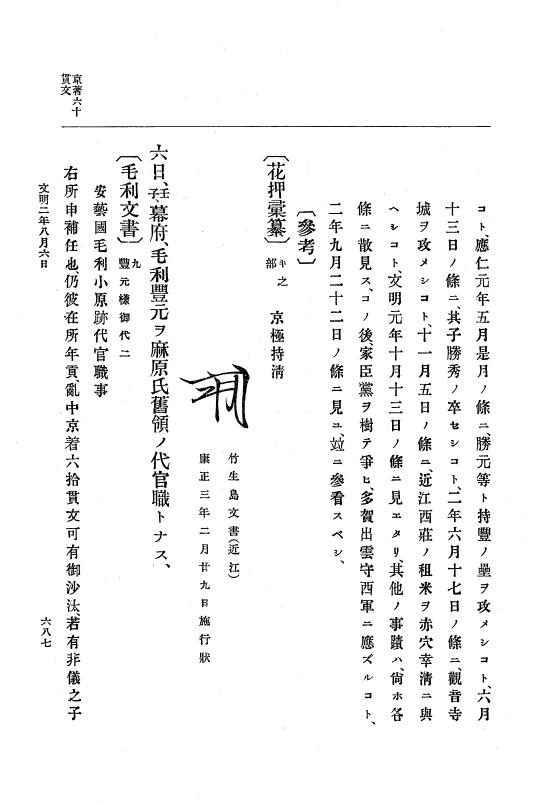 コト、應仁元年五月是月ノ條ニ、勝元等ト持豐ノ壘ヲ攻メシコト、六月
十三日ノ條ニ、其子勝秀ノ卒セシコト、二年六月十七日ノ條ニ、觀音寺
城ヲ攻メシコト、十一月五日ノ條ニ、近江西莊ノ租米ヲ赤穴幸清ニ與
ヘシコト、文明元年十月十三日ノ條ニ見エタリ、其他ノ事蹟ハ、尙ホ各
條ニ散見ス、コノ後、家臣黨ヲ樹テ爭ヒ、多賀出雲守西軍ニ應ズルコト、
二年九月二十二日ノ條ニ見ユ、竝ニ參看スベシ、
〔參考〕
〔花押彙纂〕キ之部 京極持清
竹生島文書(近江)
康正三年二月廿九日施行狀
六日、壬子幕府、毛利豐元ヲ麻原氏舊領ノ代官職トナス、
〔毛利文書〕九 豐元樣御代二
安藝國毛利小原跡代官職事
右所申補任也、仍彼在所年貢、亂中京着六拾貫文可有御沙汰、若有非儀之子
京著六十貫文
文明二年八月六日
六八七